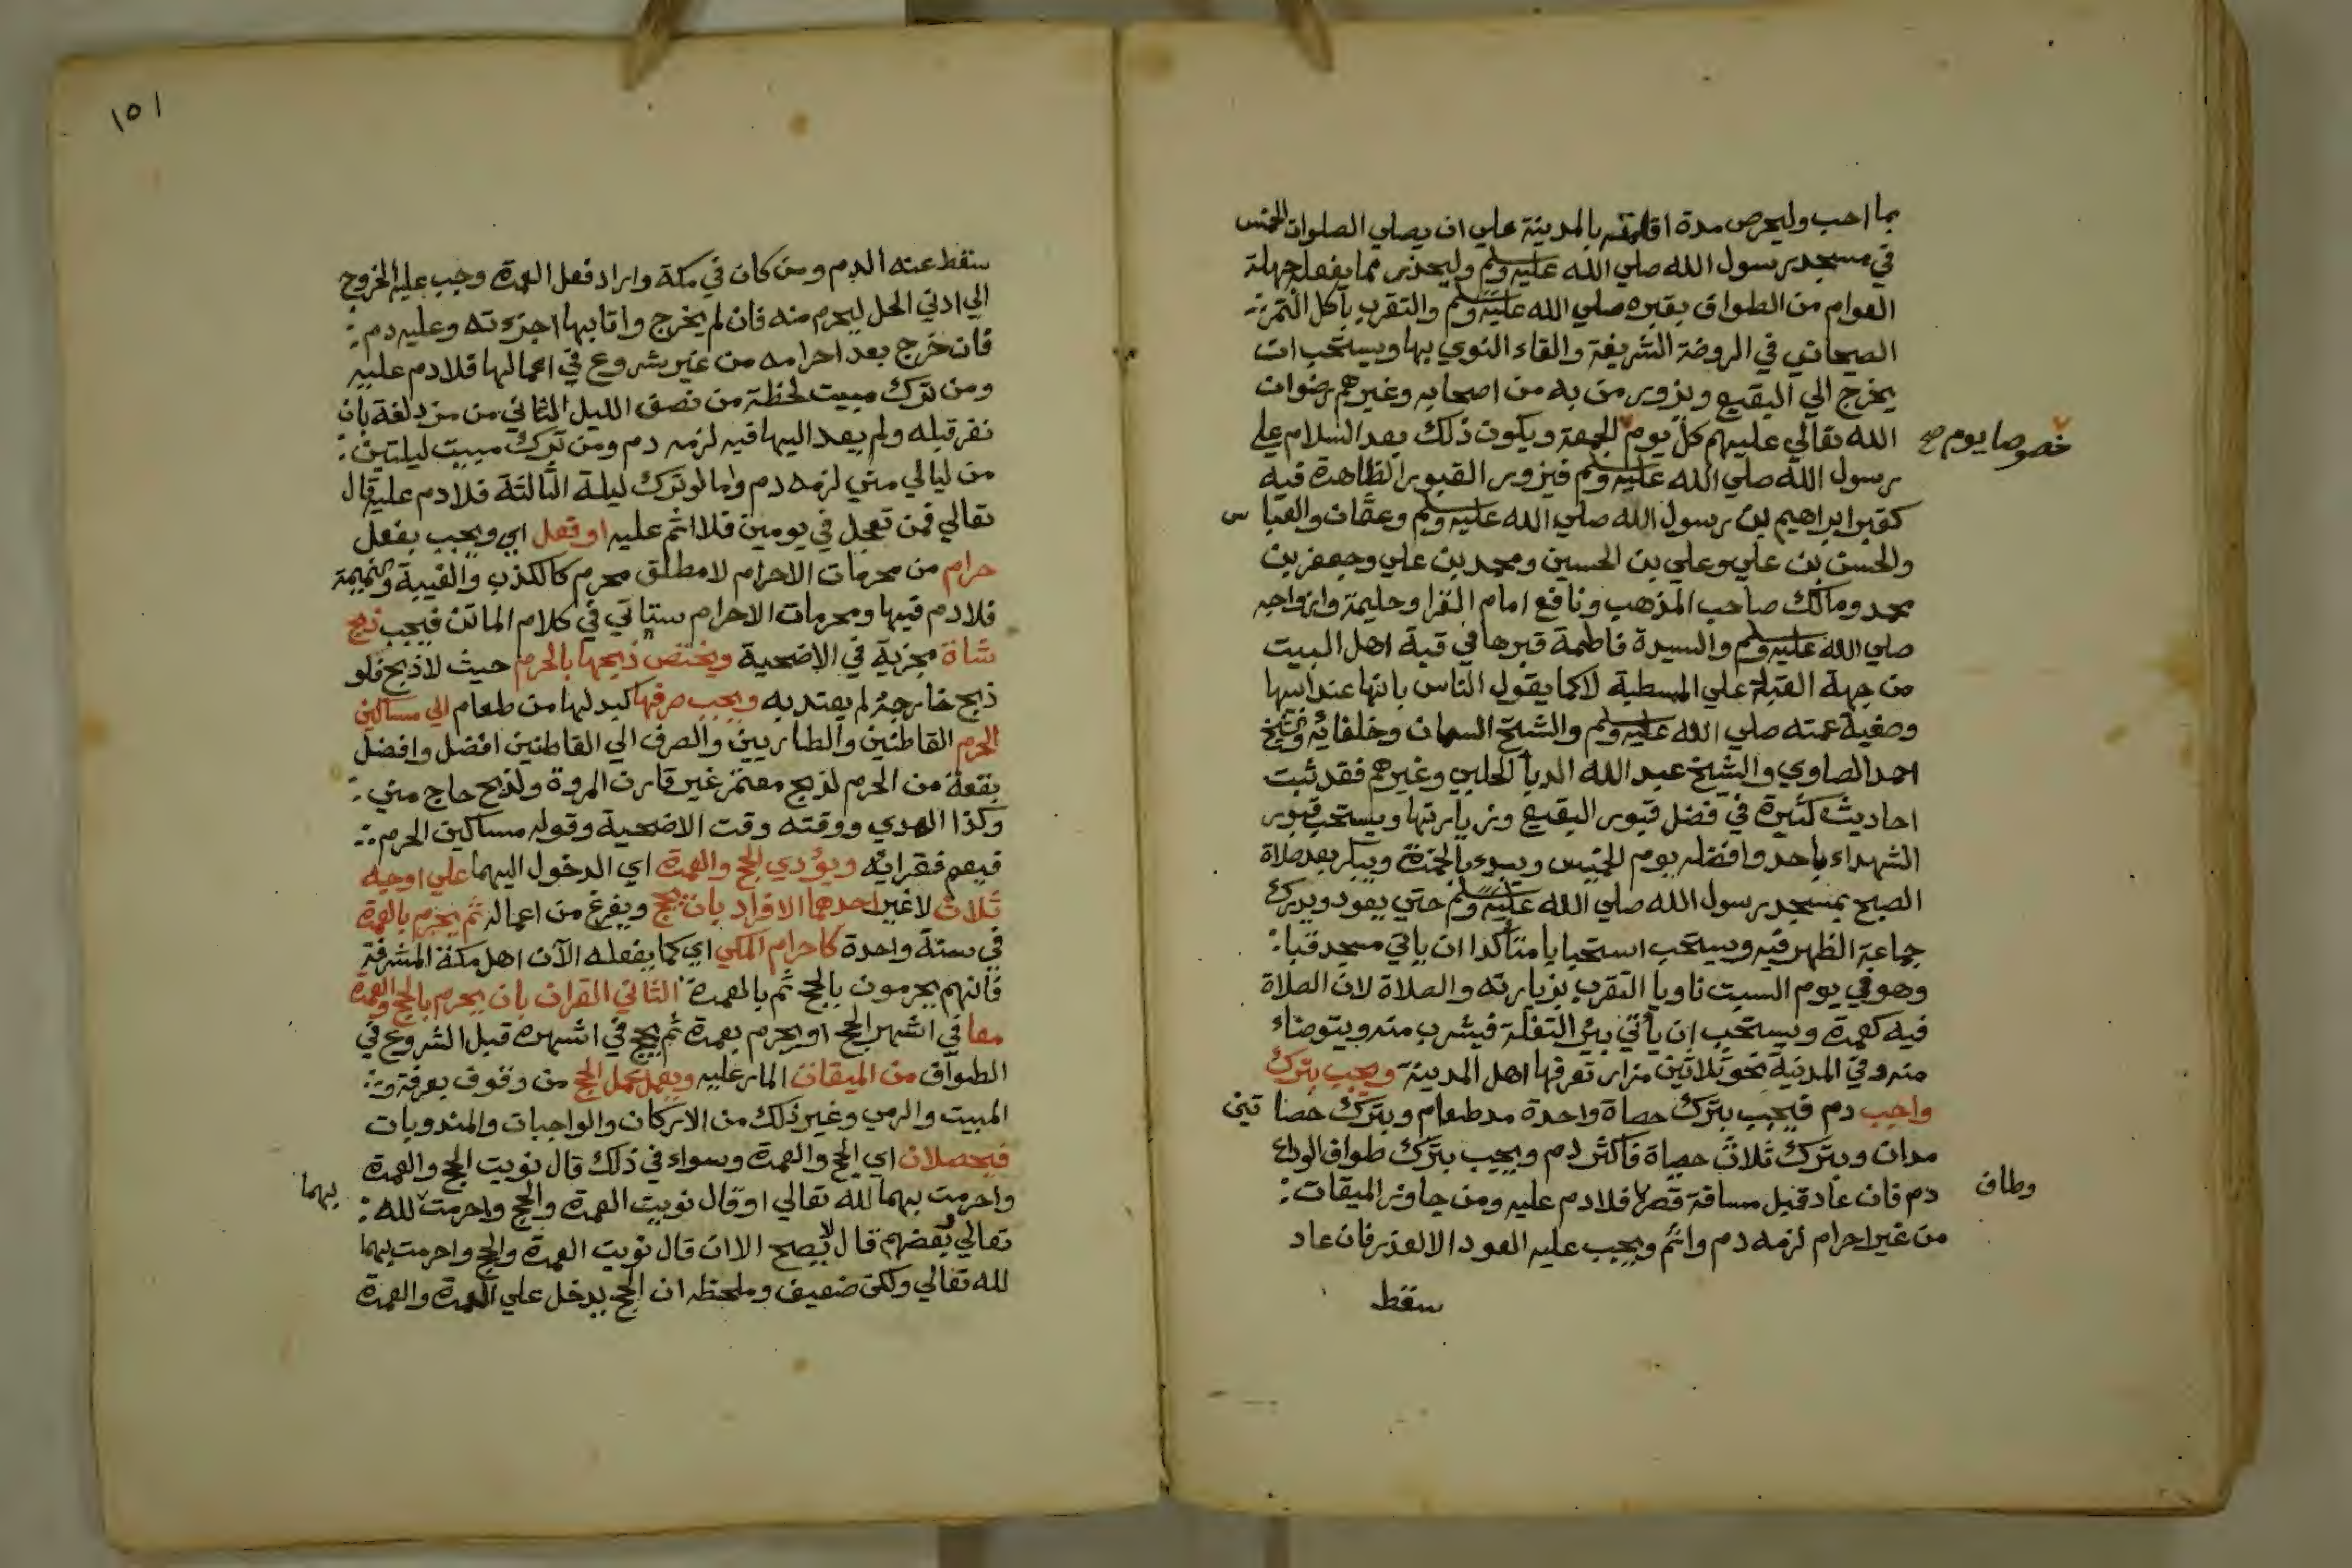 بما احب وليحرص مدة اقامته بالمدينة علي ان يصلي الصلوات الخمس
في مسجد رسول الله صلي الله عليه وسلم وليحذر مما يفعله جهلة
العوام من الطواف بقبره صلي الله عليه وسلم والتقرب باكل التمر
الصيحاني في الروضة الشريفة والقاء النوي بها ويستحب ان
يخرج الي البقيع ويزور من به من اصحابه وغيرهم رضوان
الله تعالي عليهم كل يوم الجمعة ويكون ذلك بعد السلام علي
خصوصا يوم صح
رسول الله صلي الله عليه وسلم فيزور القبور الظاهرة فيه
كقبر ابراهيم بن رسول الله صلي الله عليه وسلم وعثمان والعباس
والحسن بن علي وعلي بن الحسين ومحمد بن علي وجعفر بن
محمد ومالك صاحب المذهب ونافع امام القرا وحليمة وازواجه
صلي الله عليه وسلم والسيدة فاطمة قبرها في قبة اهل البيت
من جهة القبلة علي المسطبة لا كما يقول الناس بانها عند ابيها
وصفية عمته صلي الله عليه وسلم والشيخ السمان وخلفائه وشيخ
احمد الصاوي والشيخ عبد الله الحلبي وغيرهم فقد ثبت
احاديث كثيرة في فضل قبور البقيع وزيارتها ويستحب قبور
الشهداء باحد وافضله يوم الخميس ويبدء بالحمزة ويبكر بعد صلاة
الصبح بمسجد رسول الله صلي الله عليه وسلم حتي يعود ويدرك
جماعة الظهر فيه ويستحب استحبابا متأكدا ان ياتي مسجد قبا
وهو في يوم السبت ناويا التقرب بزيارته والصلاة لان الصلاة
فيه كعمرة ويستحب ان يأتي بئر التفلة فيشرب منه ويتوضاء
منه وفي المدنية نحو ثلاثين مزار تعرفها اهل المدينة ويجب بترك
واجب دم فيجب بترك حصاة واحدة مد طعام وبترك حصاتين
مدان وبترك ثلاث حصاة فاكثر دم ويجب بترك طواف الوداع
دم فان عاد قبل مسافة قصر فلا دم عليه ومن جاوز الميقات
وطاف
من غير احرام لزمه دم واثم ويجب عليه العود الا لعذر فان عاد
سقط
١٥١
سقط عنه الدم ومن كان في مكة واراد فعل العمرة وجب عليه الخروج
الي ادني الحل ليحرم منه فان لم يخرج واتا بها اجزءته وعليه دم
فان خرج بعد احرامه من غير شروع في اعمالها فلا دم عليه
ومن ترك مبيت لحظة من نصف الليل الثاني من مزدلفة بان
نفر قبله ولم يعد اليها فيه لزمه دم ومن ترك مبيت ليلتين
من ليالي مني لزمه دم واما لو ترك ليلة الثالثة فلا دم عليه قال
تعالي فمن تعجل في يومين فلا اثم عليه او فعل اي ويجب بفعل
حرام من محرمات الاحرام لا مطلق محرم كالكذب والغيبة والنميمة
فلا دم فيها ومحرمات الاحرام ستاتي في كلام الماتن فيجب ذبح
شاة مجزية في الاضحية ويختص ذبحها بالحرم حيث لا ذبح فلو
ذبح خارجه لم يعتد به ويجب صرفها كبدلها من طعام الي مساكين
الحرم القاطنين والطاريين والصرف الي القاطنين افضل وافضل
بقعة من الحرم لذبح معتمر غير قارن المروة ولذبح حاج مني
وكذا الهدي ووقته وقت الاضحية وقوله مساكين الحرم
فيعم فقرائه ويؤدي الحج والعمرة اي الدخول اليهما علي اوجه
ثلاث لا غير احدهما الافراد بان يحج ويفرغ من اعماله ثم يحرم بالعمرة
في سنة واحدة كاحرام المكي اي كما يفعله الآن اهل مكة المشرفة
فانهم يحرمون بالحج ثم بالعمرة الثاني القران بان يحرم بالحج والعمرة
معا في اشهر الحج او يحرم بعمرة ثم يحج في اشهره قبل الشروع في
الطواف من الميقات المار عليه ويعمل عمل الحج من وقوف بعرفة و
المبيت والرمي وغير ذلك من الاركان والواجبات والمندوبات
فيحصلان اي الحج والعمرة وسواء في ذلك قال نويت الحج والعمرة
واحرمت بهما لله تعالي او قال نويت العمرة والحج واحرمت لله
بهما
تعالي بعضهم قال لا يصح الا ان قال نويت العمرة والحج واحرمت بهما
لله تعالي ولكن ضعيف وملحظه ان الحج يدخل علي العمرة والعمرة